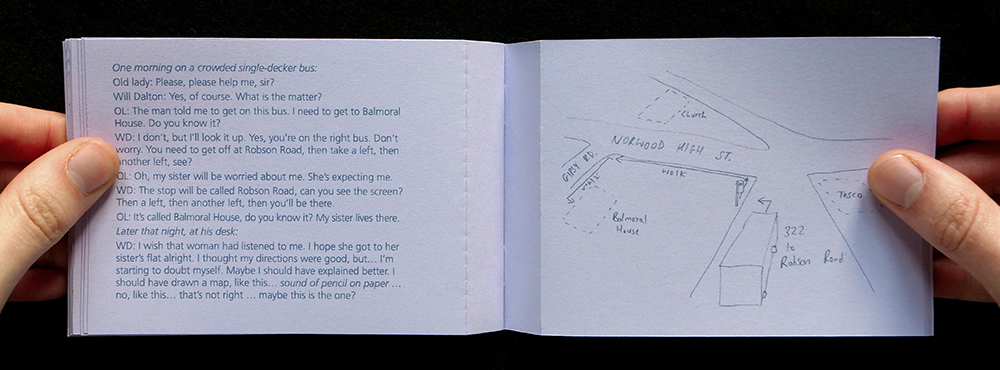 One morning on a crowded single-decker bus:
Old lady: Please, please help me, sir?
Will Dalton: Yes, of course. What is the matter?
OL: The man told me to get on this bus. I need to get to Balmoral
House. Do you know it?
WD: I don't, but I'll look it up. Yes, you're on the right bus. Don't
worry. You need to get off at Robson Road, then take a left, then
another left, see?
OL: Oh, my sister will be worried about me. She's expecting me.
WD: The stop will be called Robson Road, can you see the screen?
Then a left, then another left, then you'll be there.
OL: It's called Balmoral House, do you know it? My sister lives there.
Later that night, at his desk:
WD: I wish that woman had listened to me. I hope she got to her
sister's flat alright. I thought my directions were good, but... I'm
starting to doubt myself. Maybe I should have explained better. I
should have drawn a map, like this... sound of pencil on paper ...
no, like this... that's not right ... maybe this is the one?
Church
NORWOOD HIGH ST.
GIBY RD.
WALK
WALK
Tesco
Balmoral
House
322
to
Robson Road